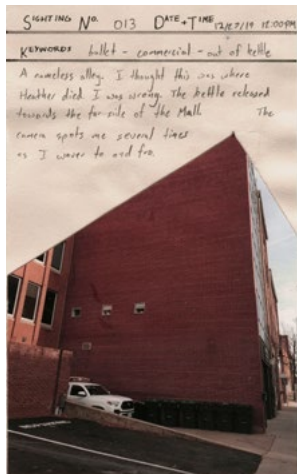 SIGHTING NO. 013 DATE+TIME 12/27/19 12:00PM
KEYWORDS bullet - commercial - out of kettle
A nameless alley. I thought this was where
Heather died. I was wrong. The kettle released
towards the far side of the Mall. The
camera spots me several times
as I waver to and fro.